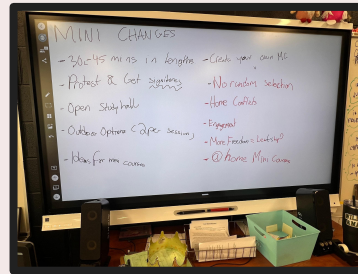 MINI CHANGES
- 30-45 mins in lengths
- Protest & Get signatures
- Open Studyhall
- Outdoor Options (2 per session)
- Ideas for mini courses
- Create your own M.C.
- No random selection
- Home Conflicts
- Engagement
- More Freedom = Leadership?
- @ home Mini Courses